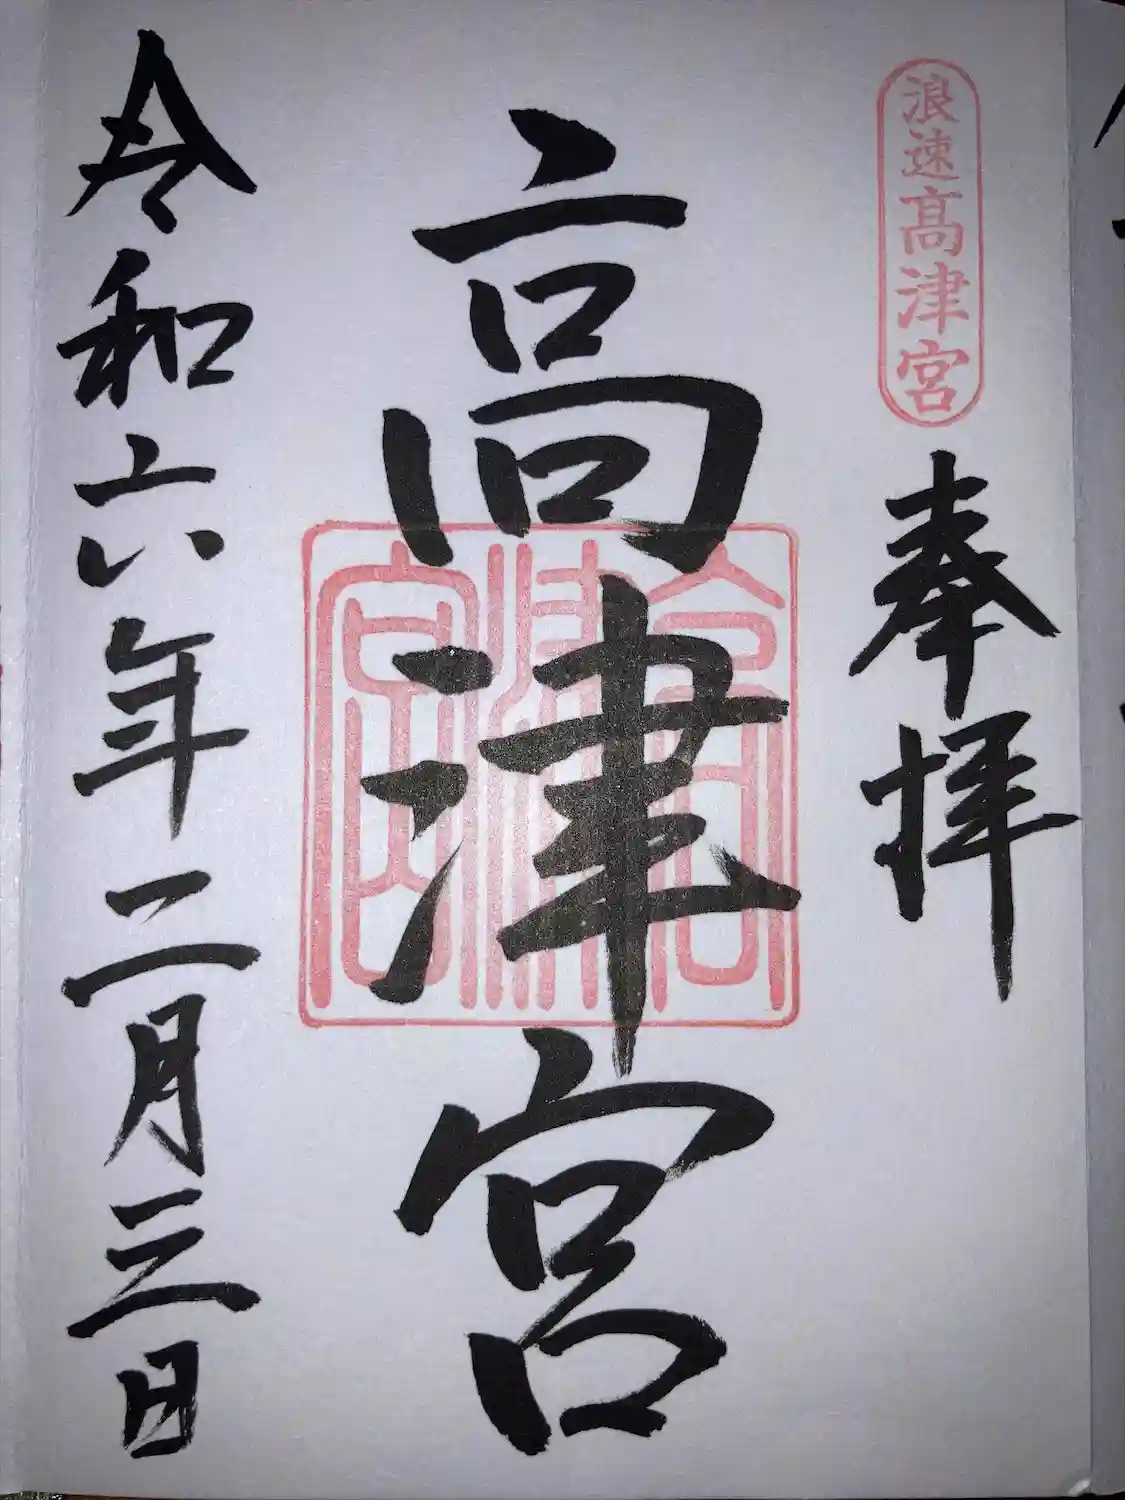 浪速髙津宮
奉拝
高津宮
高津宮
令和六年二月三日